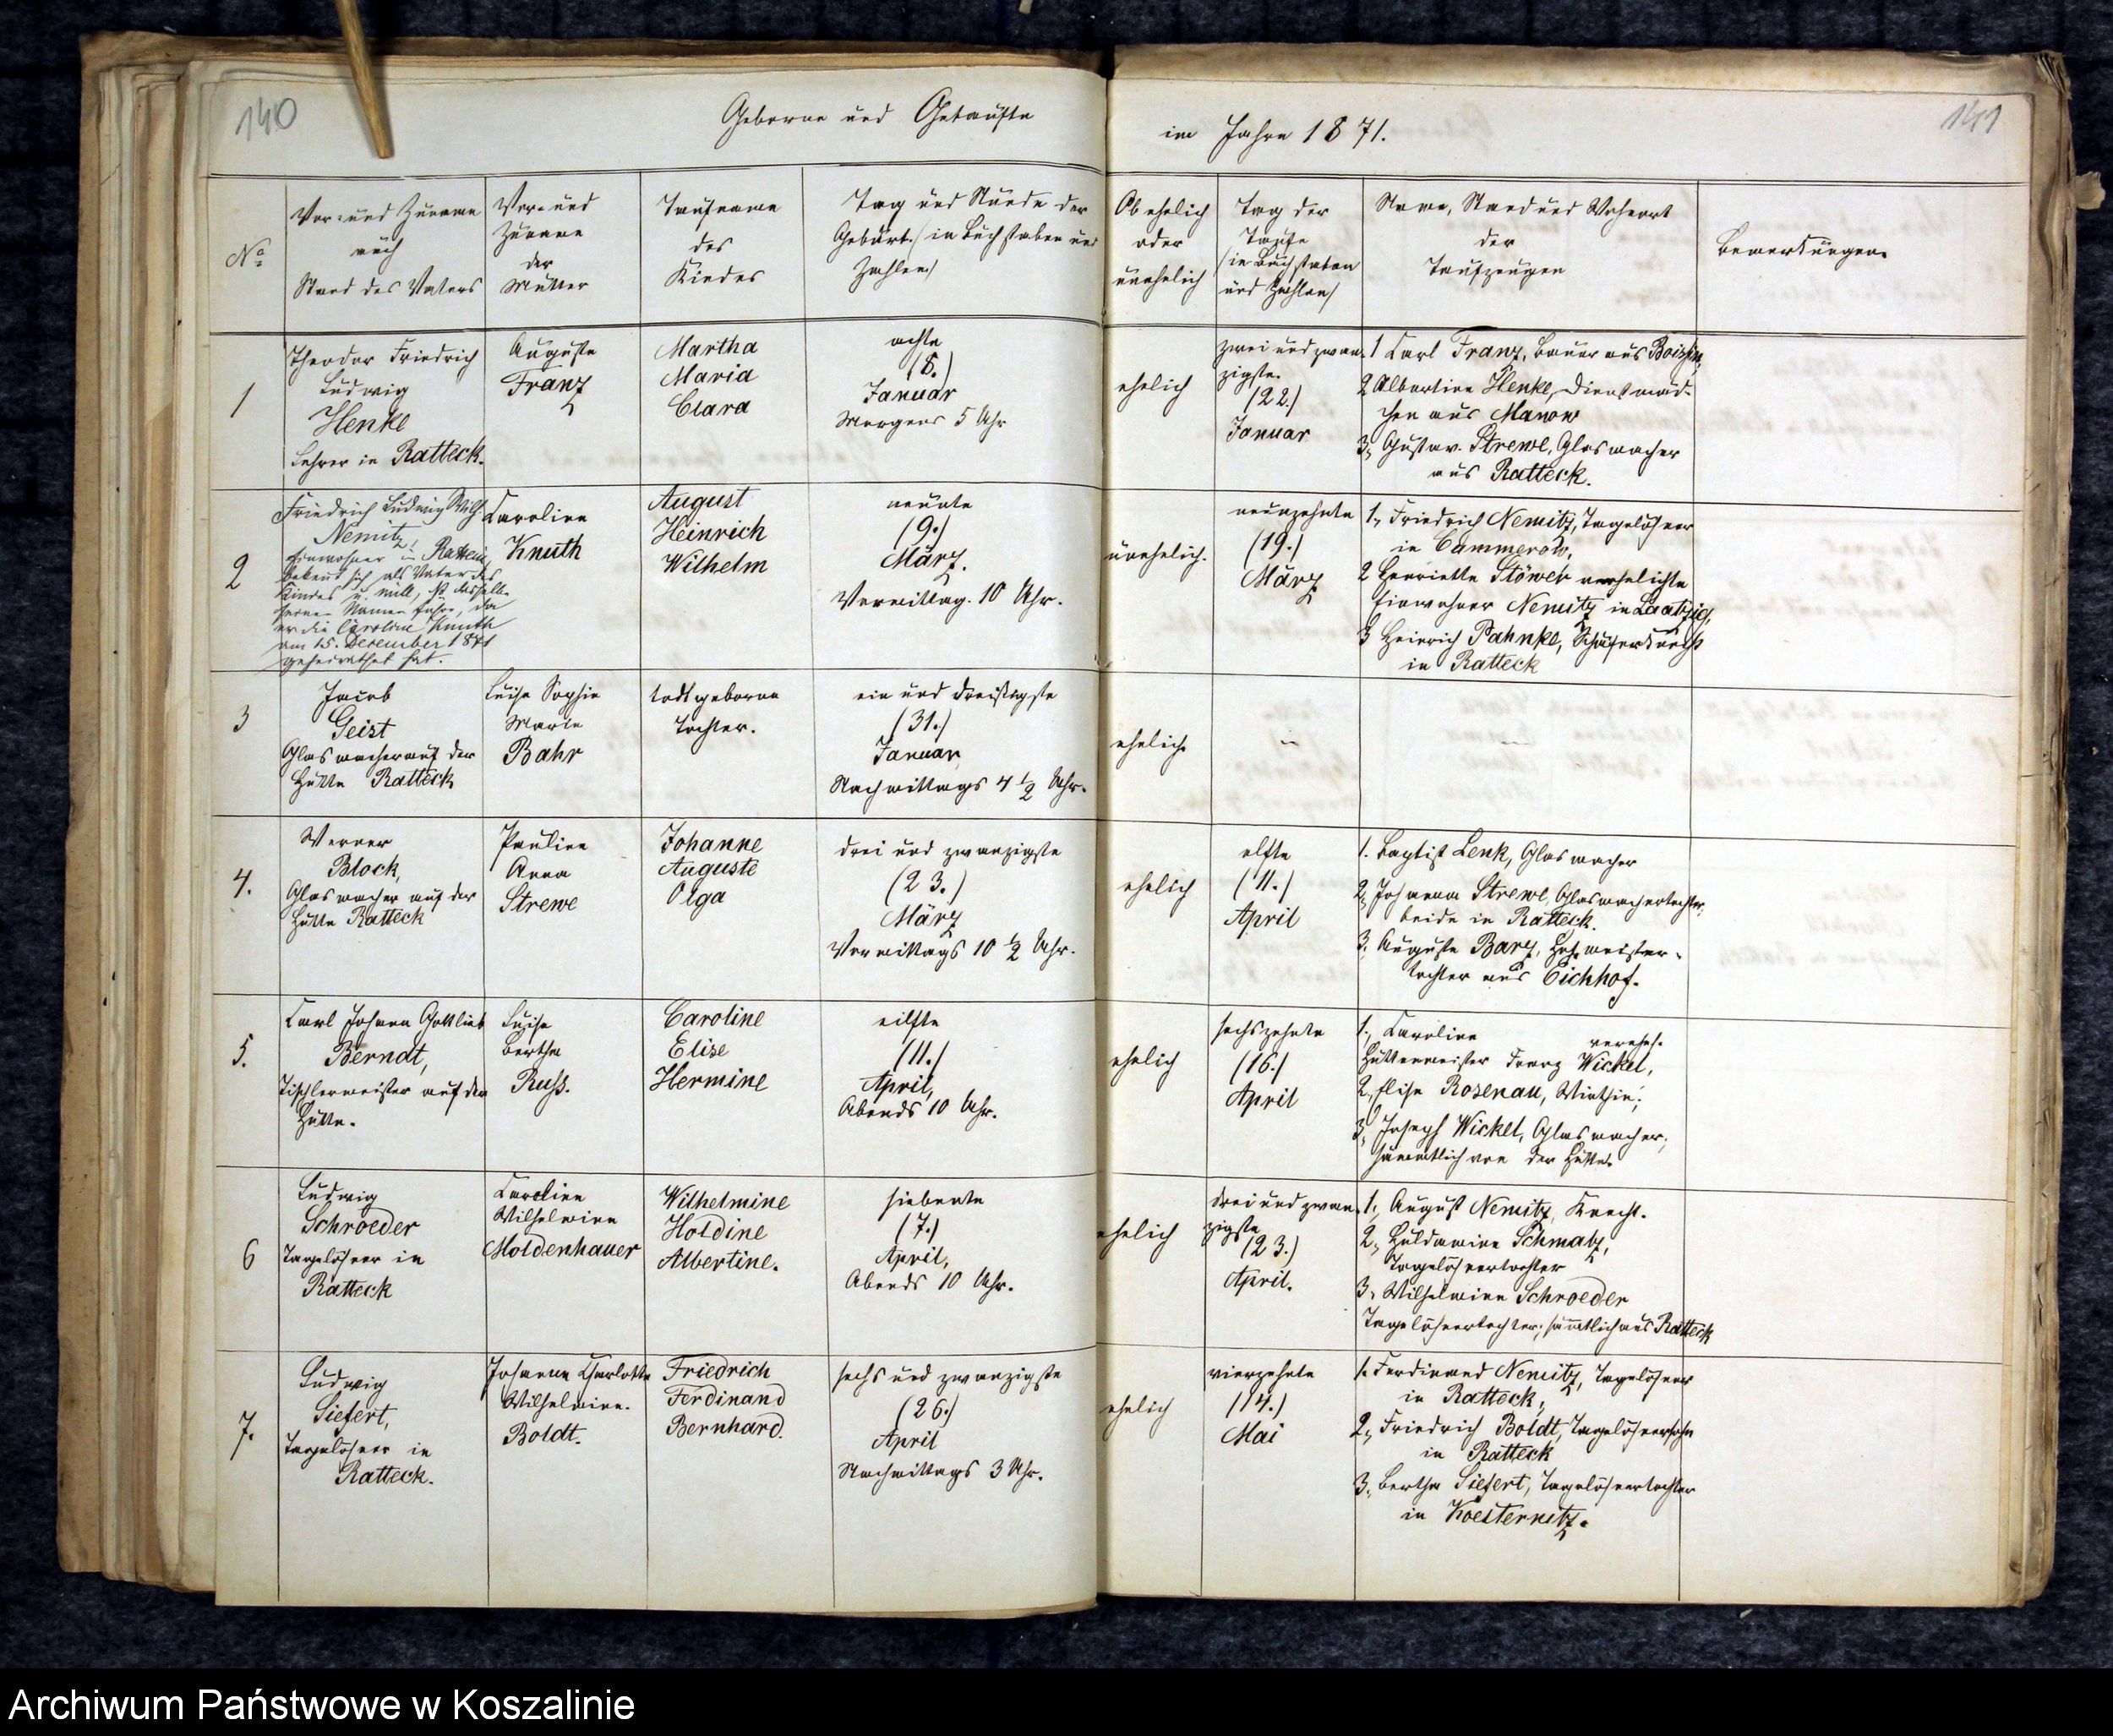 140
Geborne und Getaufte
im Jahre 1871.
141
No
Vor- und Zuname
auch
Stand des Vaters
Vor- und
Zuname
der
Mutter
Taufname
des
Kindes
Tag und Stunde der
Geburt. /in Buchstaben und
Zahlen/
Ob ehelich
oder
unehelich
Tag der
Taufe
/in Buchstaben
und Zahlen/
Name, Stand und Wohnort
der
Taufzeugen
Bemerkungen.
1
Theodor Friedrich
Ludwig
Henke
Lehrer in Ratteck.
Auguste
Franz
Martha
Maria
Clara
achte
(8.)
Januar
Morgens 5 Uhr
ehelich
zwei und zwan-
zigste.
(22.)
Januar
1 Carl Franz, Bauer aus
2 Albertine Henke, Dienstmäd-
chen aus Manow
3, Gustav Strewe, Glasmacher
aus Ratteck.
2
Friedrich Ludwig Wilh.
Nemitz,
Einwohner in Ratteck,
bekennt sich als Vater des
Kindes u. will, daß dasselbe
seinen Namen führe, da
er die Caroline Knuth
am 15. Dezember 1871
geheirathet hat.
Caroline
Knuth
August
Heinrich
Wilhelm
neunte
(9.)
März.
Vormittag. 10 Uhr.
unehelich.
neunzehnte
(19.)
März
1, Friedrich Nemitz, Tagelöhner
in Cammerow,
2 Henriette Stöwer verehelichte
Einwohner Nemitz in
3 Heinrich Pahnke, Schäferknecht
in Ratteck
3
Jacob
Geist
Glasmacher auf der
Hütte Ratteck
Luise Sophie
Marie
Bahr
todtgeborne
Tochter.
ein und dreißigste
(31.)
Januar,
Nachmittags 4 1/2 Uhr.
ehelich
4.
Werner
Block,
Glasmacher auf der
Hütte Ratteck
Pauline
Anna
Strewe
Johanne
Auguste
Olga
drei und zwanzigste
(23.)
März
Vormittags 10 1/2 Uhr.
ehelich
elfte
(11.)
April
1. Baptist Lenk, Glasmacher
2, Johanna Strewe, Glasmachertochter,
beide in Ratteck.
3. Auguste Barz, Hofmeister-
tochter aus Eichhof.
5.
Carl Johann Gottlieb
Berndt,
Tischlermeister auf der
Hütte.
Luise
Bertha
Russ.
Caroline
Elise
Hermine
eilfte
(11.)
April,
Abends 10 Uhr.
ehelich
sechszehnte
(16.)
April
1., Caroline verehel.
Hüttenmeister Franz Wickel,
2, Elise Rosenau, Wirthin,
3, Joseph Wickel, Glasmacher,
sämmtlich von der Hütte.
6
Ludwig
Schroeder
Tagelöhner in
Ratteck
Caroline
Wilhelmine
Moldenhauer
Wilhelmine
Holdine
Albertine.
siebente
(7.)
April,
Abends 10 Uhr.
ehelich
drei und zwan-
zigste
(23.)
April.
1., August Nemitz, Knecht.
2, Huldamine Schmalz,
Tagelöhnertochter
3, Wilhelmine Schroeder
Tagelöhnertochter, sämmtlich aus Ratteck
7.
Ludwig
Siefert,
Tagelöhner in
Ratteck.
Johanne Charlotte
Wilhelmine.
Boldt.
Friedrich
Ferdinand
Bernhard.
sechs und zwanzigste
(26.)
April
Nachmittags 3 Uhr.
ehelich
vierzehnte
(14.)
Mai
1. Ferdinand Nemitz, Tagelöhner
in Ratteck,
2, Friedrich Boldt, Tagelöhnersohn
in Ratteck
3, Bertha Siefert, Tagelöhnertochter
in Koesternitz.
Archiwum Państwowe w Koszalinie